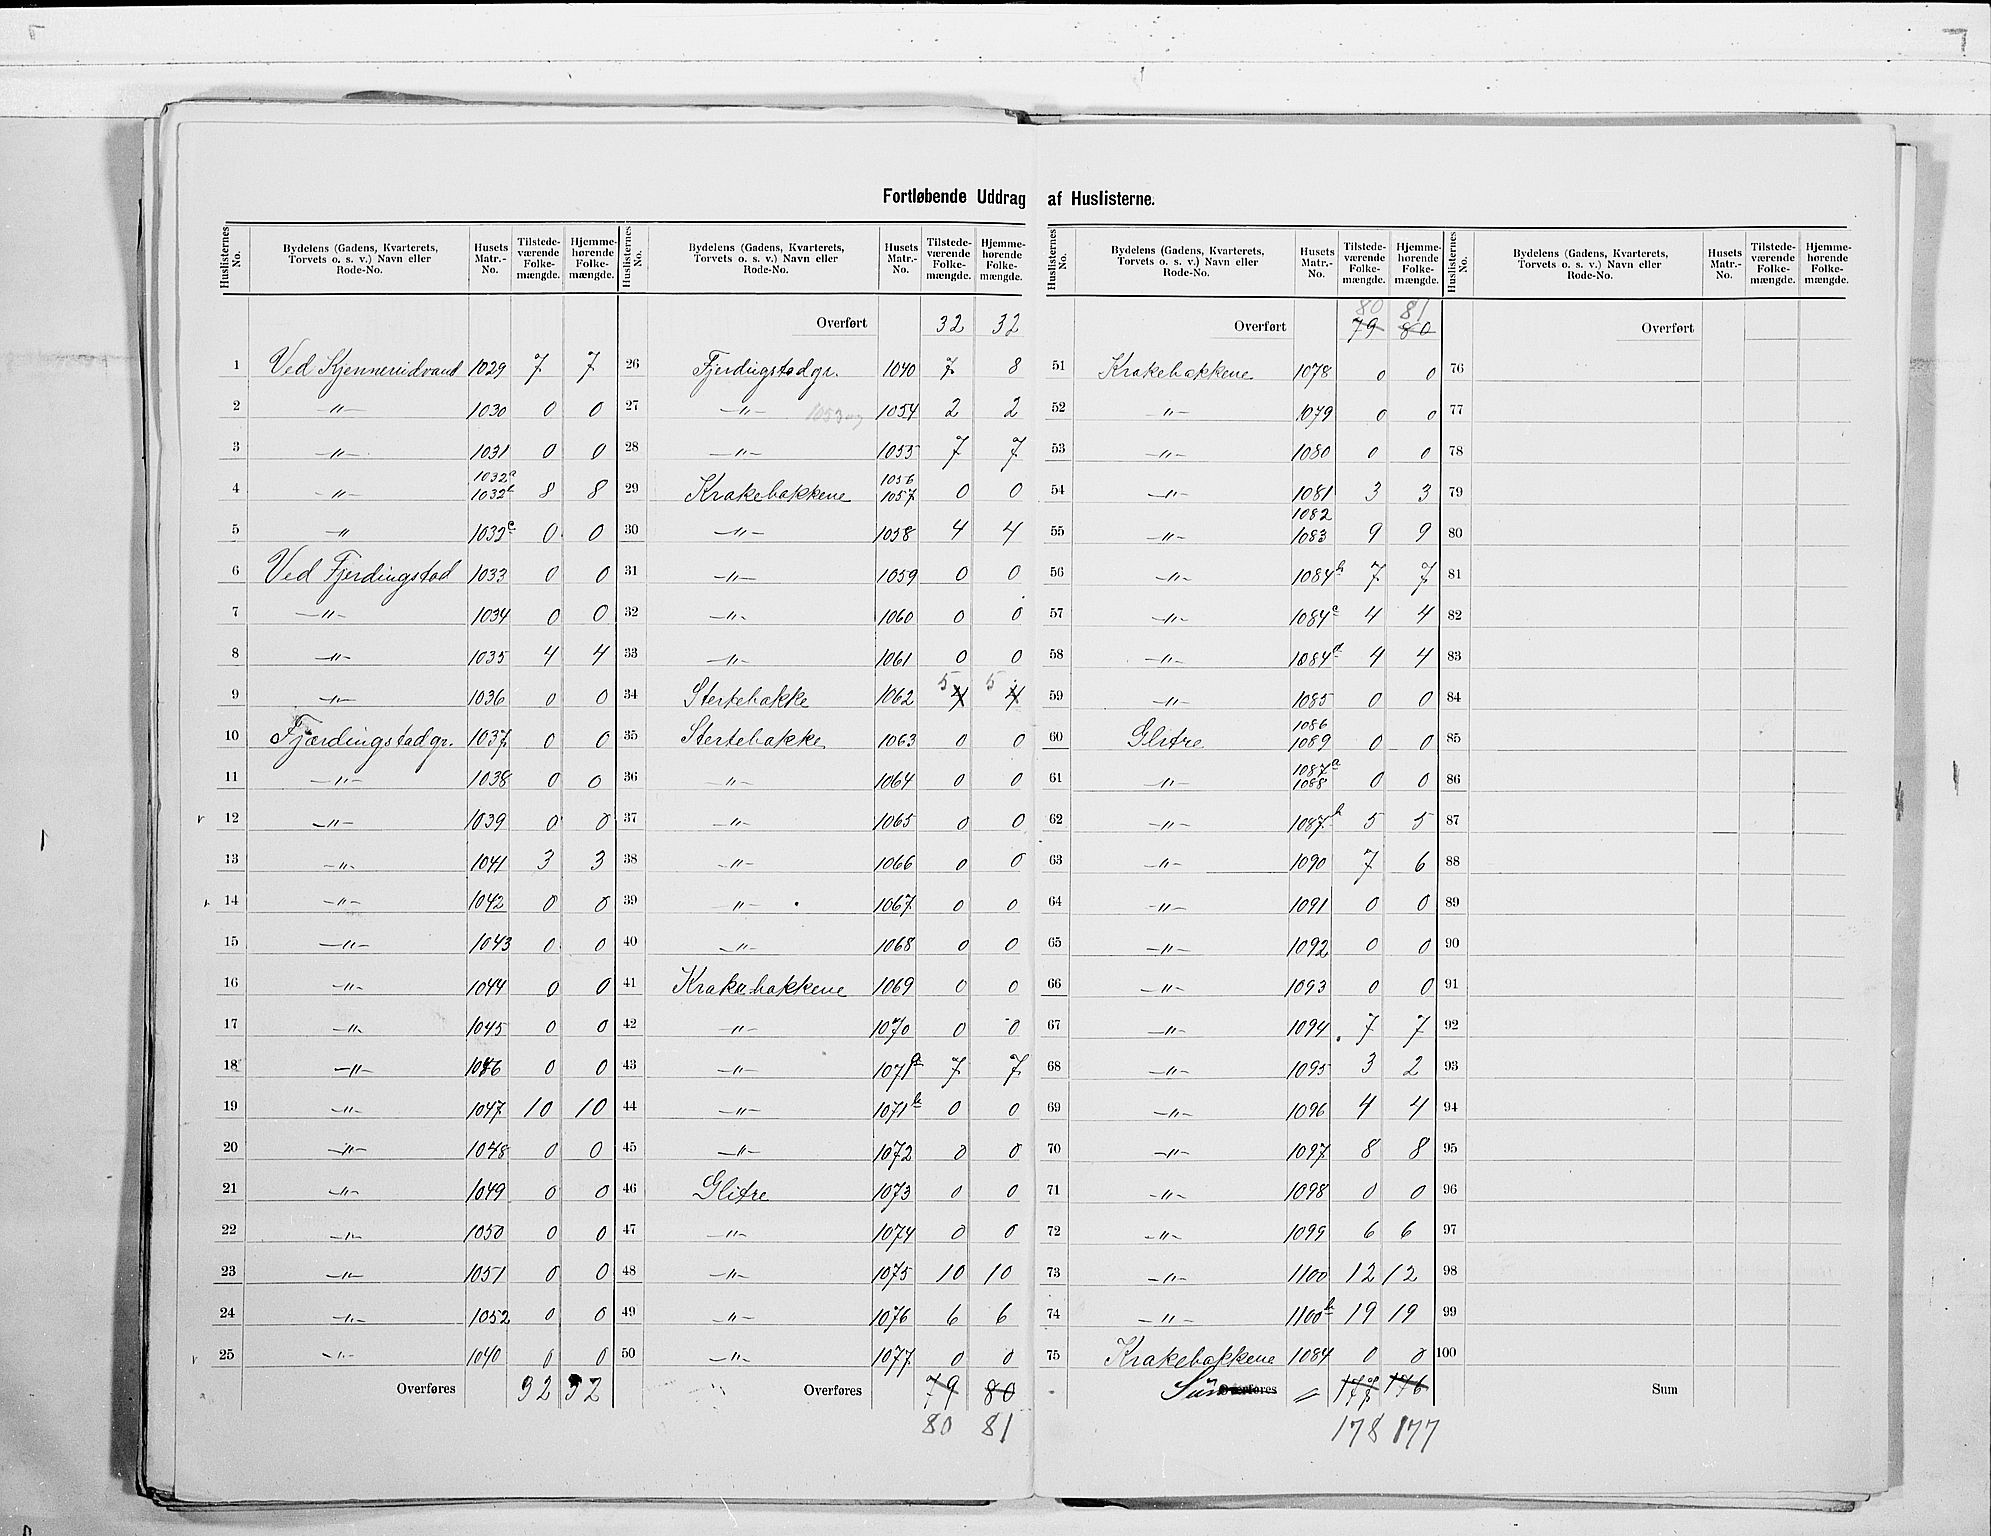 Fortløbende Uddrag af Huslisterne.
Huslisternes No. | Bydelens (Gadens, Kvarterets, Torvets o. s. v.) Navn eller Rode-No. | Husets Matr.-No. | Tilstede-værende Folke-mængde. | Hjemme-hørende Folke-mængde.
1 Ved Kjennerudvand 1029 7 7
2 —〃— 1030 0 0
3 —〃— 1031 0 0
4 —〃— 1032a 1032b 8 8
5 —〃— 1032c 0 0
6 Ved Fjerdingstad 1033 0 0
7 —〃— 1034 0 0
8 —〃— 1035 4 4
9 —〃— 1036 0 0
10 Fjærdingstadgr. 1037 0 0
11 —〃— 1038 0 0
12 —〃— 1039 0 0
13 —〃— 1041 3 3
14 —〃— 1042 0 0
15 —〃— 1043 0 0
16 —〃— 1044 0 0
17 —〃— 1045 0 0
18 —〃— 1046 0 0
19 —〃— 1047 10 10
20 —〃— 1048 0 0
21 —〃— 1049 0 0
22 —〃— 1050 0 0
23 —〃— 1051 0 0
24 —〃— 1052 0 0
25 —〃— 1040 0 0
Overføres 32 32
Huslisternes No. | Bydelens (Gadens, Kvarterets, Torvets o. s. v.) Navn eller Rode-No. | Husets Matr.-No. | Tilstede-værende Folke-mængde. | Hjemme-hørende Folke-mængde.
Overført 32 32
26 Fjerdingstadgr. 1040 7 8
27 —〃— 1053 og 1054 2 2
28 —〃— 1055 7 7
29 Krakebakkene 1056 1057 0 0
30 —〃— 1058 4 4
31 —〃— 1059 0 0
32 —〃— 1060 0 0
33 —〃— 1061 0 0
34 Stertebakke 1062 5 4 5 4
35 Stertebakke 1063 0 0
36 —〃— 1064 0 0
37 —〃— 1065 0 0
38 —〃— 1066 0 0
39 —〃— 1067 0 0
40 —〃— 1068 0 0
41 Krakebakkene 1069 0 0
42 —〃— 1070 0 0
43 —〃— 1071a 7 7
44 —〃— 1071b 0 0
45 —〃— 1072 0 0
46 Glitre 1073 0 0
47 —〃— 1074 0 0
48 —〃— 1075 10 10
49 —〃— 1076 6 6
50 —〃— 1077 0 0
Overføres 79 80
80 81
Huslisternes No. | Bydelens (Gadens, Kvarterets, Torvets o. s. v.) Navn eller Rode-No. | Husets Matr.-No. | Tilstede-værende Folke-mængde. | Hjemme-hørende Folke-mængde.
80 81
Overført 79 80
51 Krakebakkene 1078 0 0
52 —〃— 1079 0 0
53 —〃— 1080 0 0
54 —〃— 1081 3 3
55 —〃— 1082 1083 9 9
56 —〃— 1084b 7 7
57 —〃— 1084c 4 4
58 —〃— 1084d 4 4
59 —〃— 1085 0 0
60 Glitre 1086 1089 0 0
61 —〃— 1087a 1088 0 0
62 —〃— 1087b 5 5
63 —〃— 1090 7 6
64 —〃— 1091 0 0
65 —〃— 1092 0 0
66 —〃— 1093 0 0
67 —〃— 1094 7 7
68 —〃— 1095 3 2
69 —〃— 1096 4 4
70 —〃— 1097 8 8
71 —〃— 1098 0 0
72 —〃— 1099 6 6
73 —〃— 1100 12 12
74 —〃— 1100b 19 19
75 Krakebakkene 1084 0 0
Sum 176
178 177
Huslisternes No. | Bydelens (Gadens, Kvarterets, Torvets o. s. v.) Navn eller Rode-No. | Husets Matr.-No. | Tilstede-værende Folke-mængde. | Hjemme-hørende Folke-mængde.
Overført
76
77
78
79
80
81
82
83
84
85
86
87
88
89
90
91
92
93
94
95
96
97
98
99
100
Sum